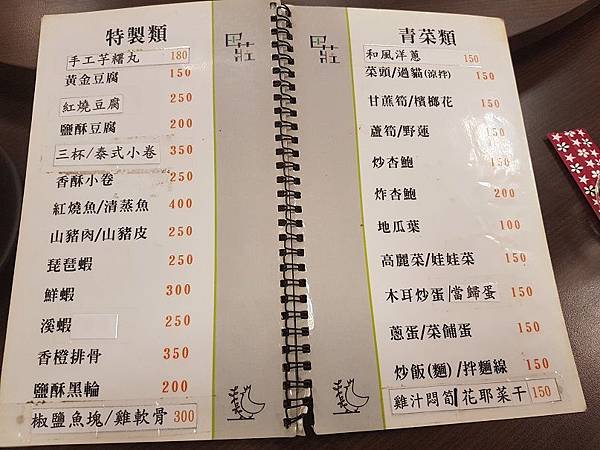 特製類
手工芋糯丸 180
黃金豆腐 150
紅燒豆腐 250
鹽酥豆腐 200
三杯/泰式小卷 350
香酥小卷 250
紅燒魚/清蒸魚 400
山豬肉/山豬皮 250
琵琶蝦 250
鮮蝦 300
溪蝦 250
香橙排骨 350
鹽酥黑輪 200
椒鹽魚塊/雞軟骨 300
青菜類
和風洋蔥 150
菜頭/過貓(涼拌) 150
甘蔗筍/檳榔花 150
蘆筍/野蓮 150
炒杏鮑 150
炸杏鮑 200
地瓜葉 100
高麗菜/娃娃菜 150
木耳炒蛋/當歸蛋 150
蔥蛋/菜餔蛋 150
炒飯(麵)/拌麵線 150
雞汁悶筍/花耶菜干 150